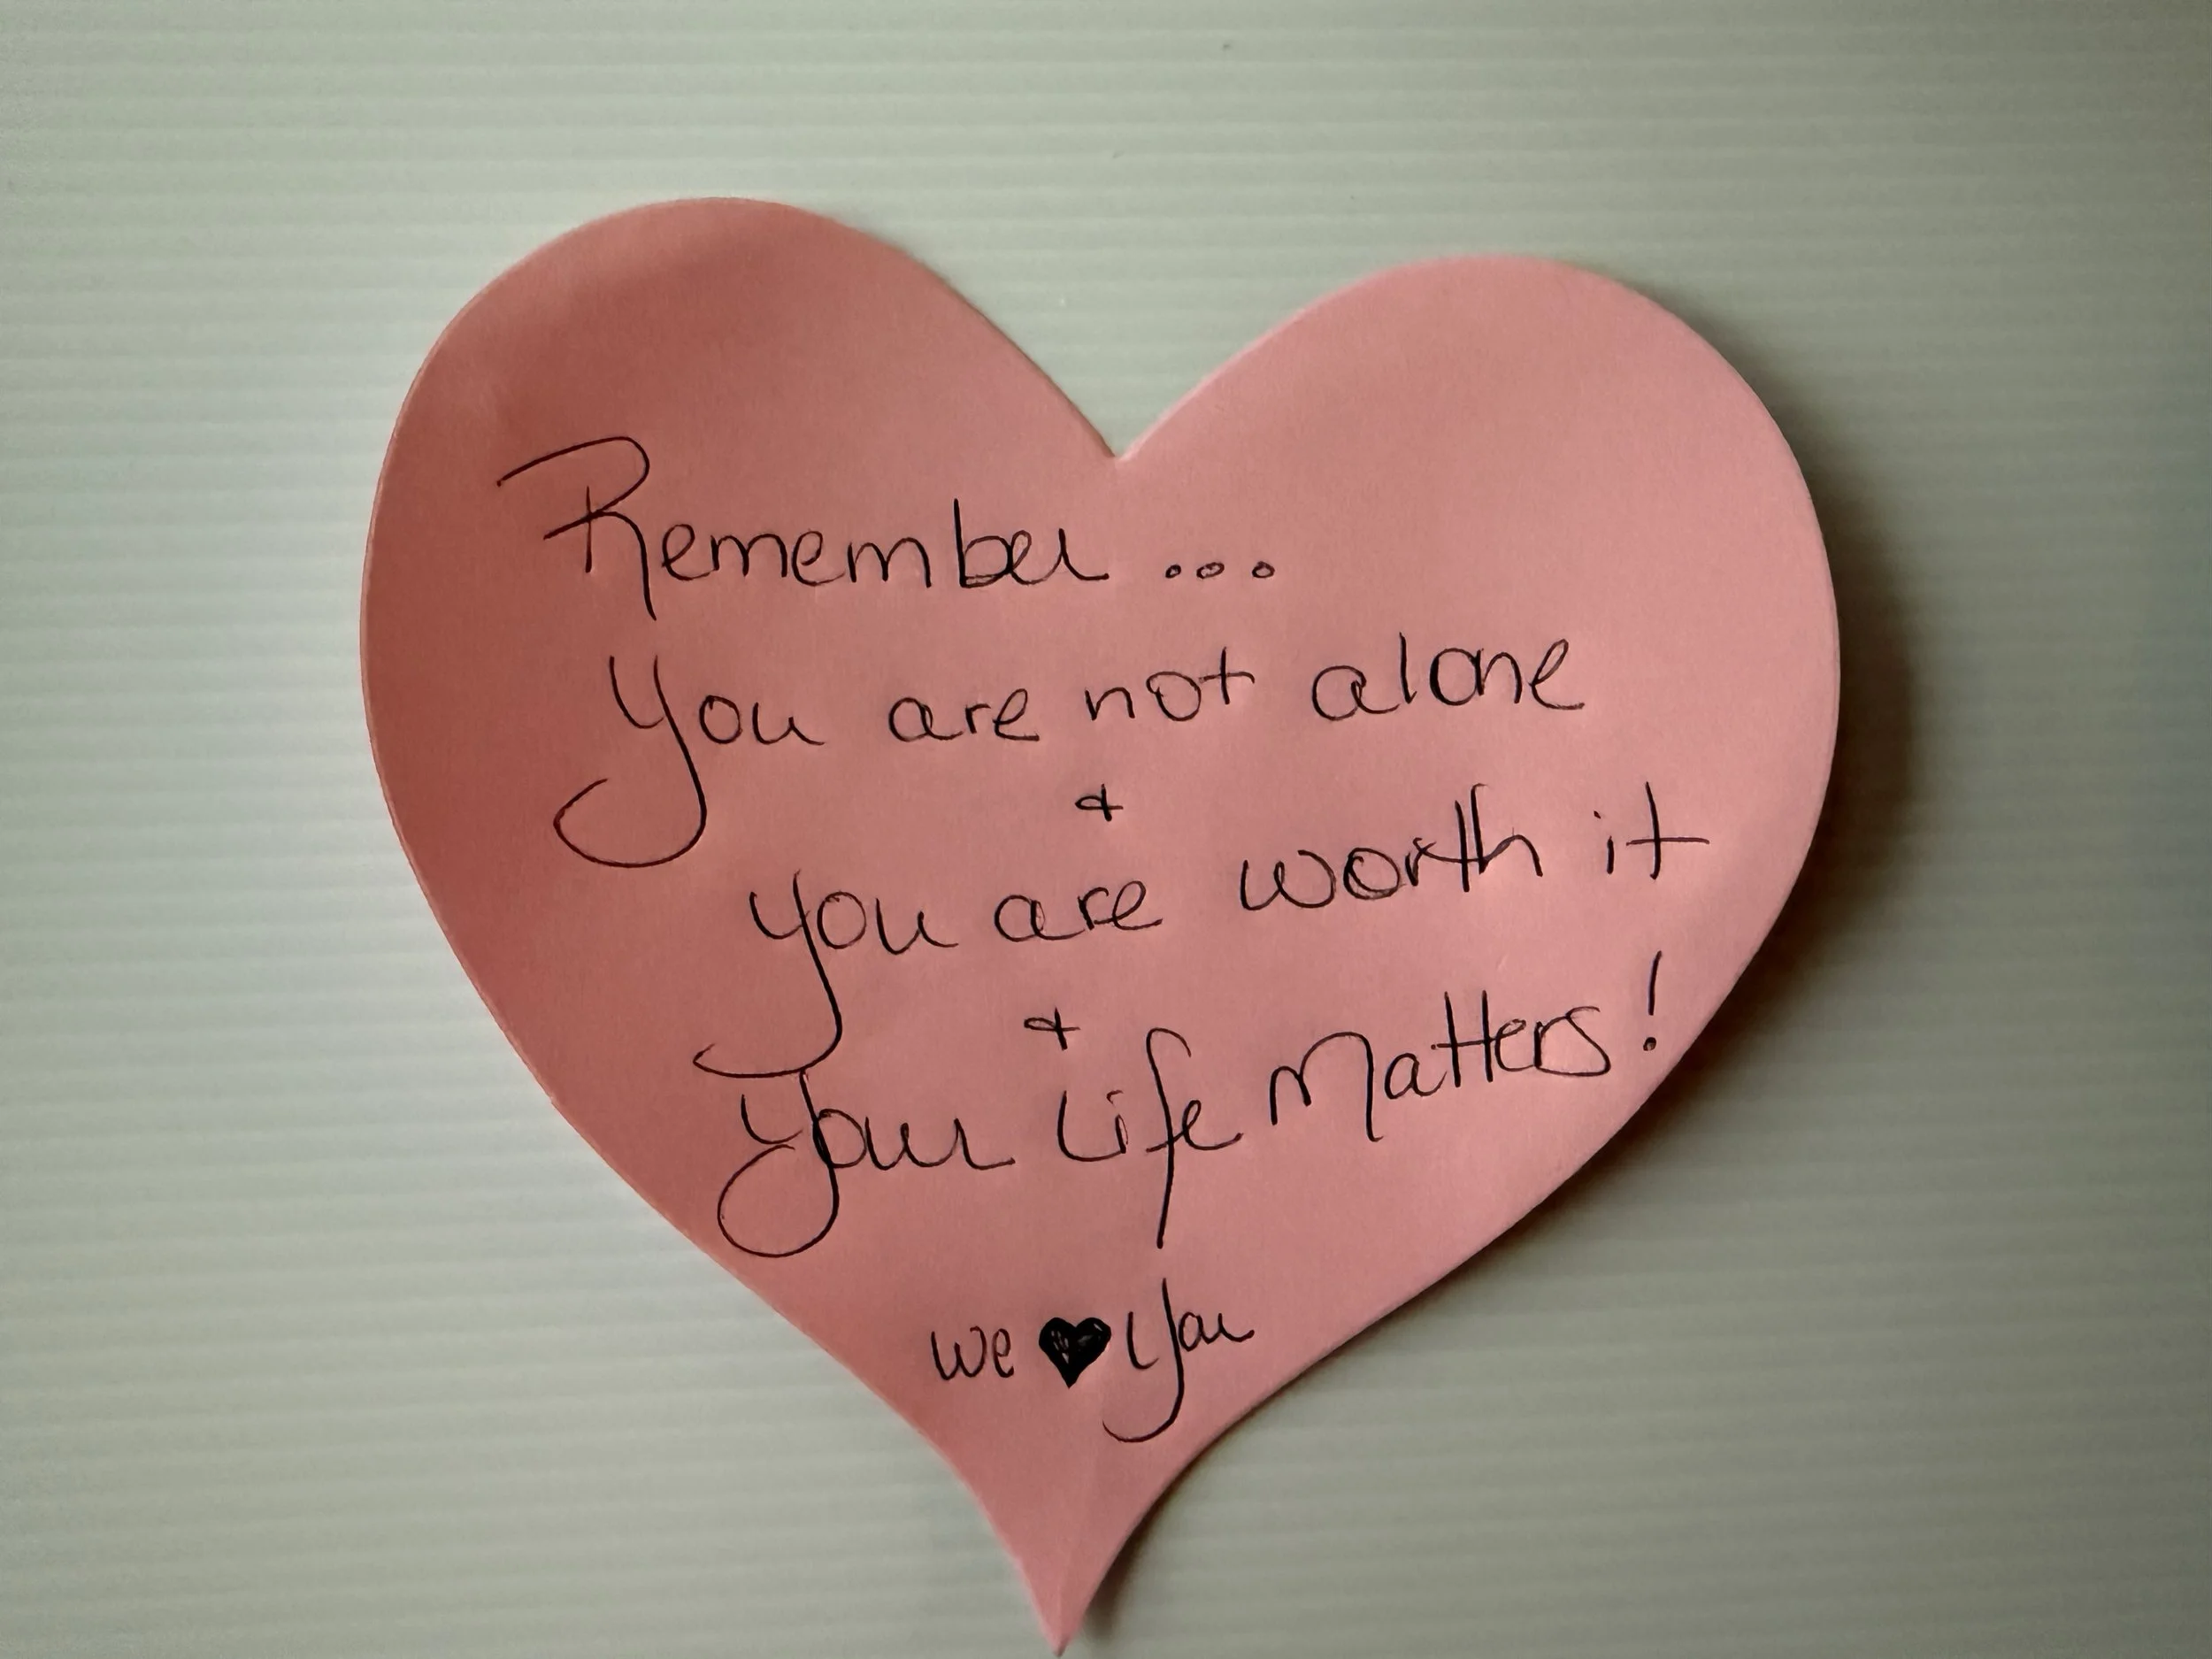 Remember ...
You are not alone
&
you are worth it
&
Your Life Matters!
we ♥ you